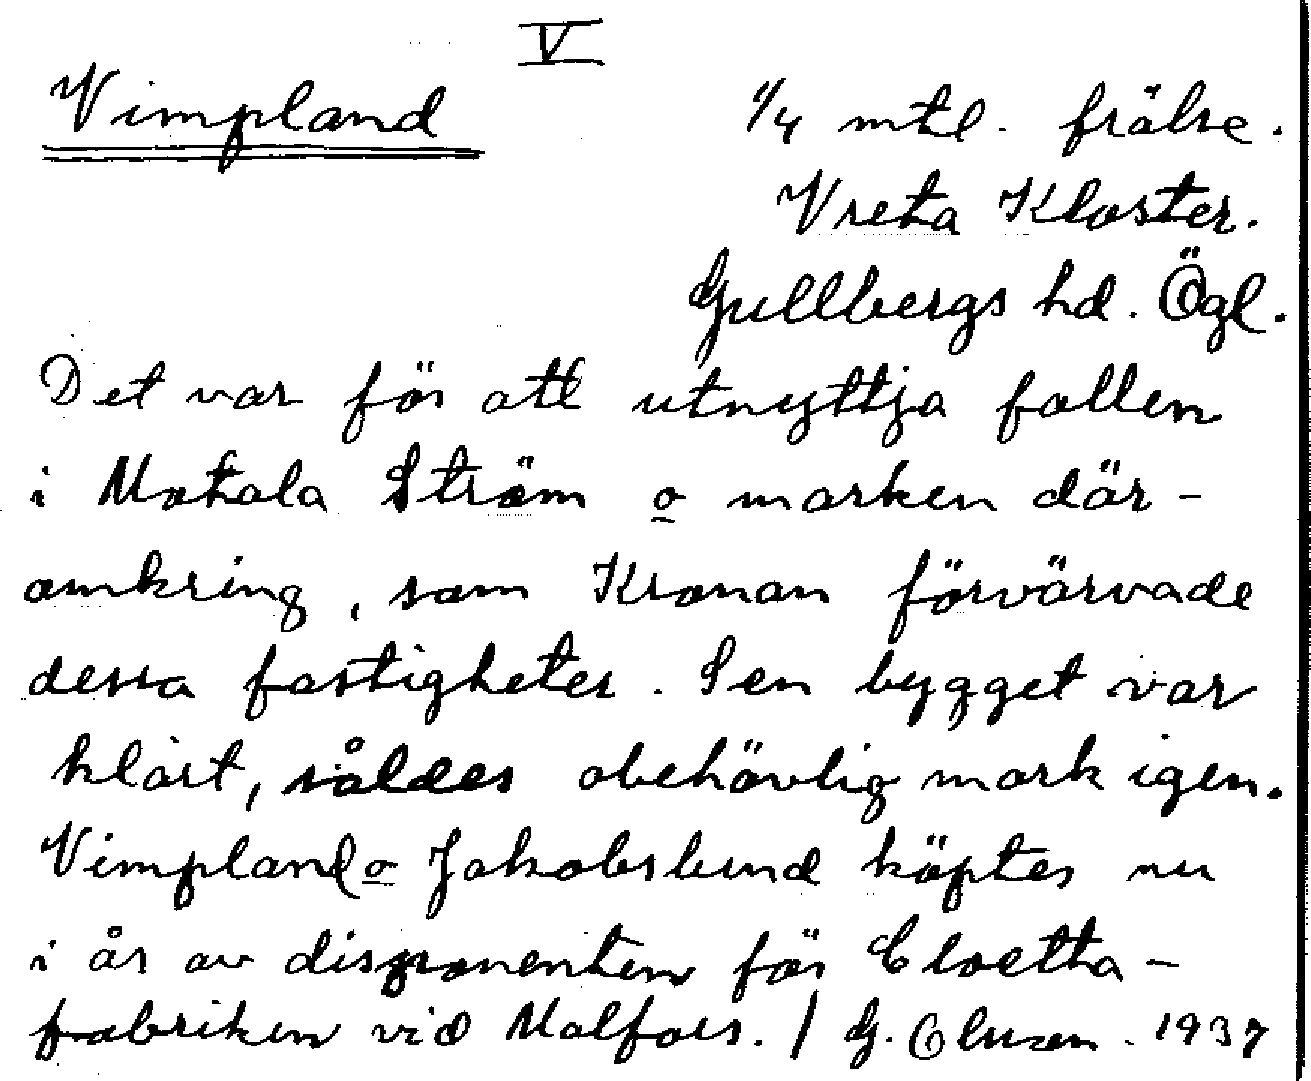 V
Vimpland 1/4 mtl. frälse.
Vreta Kloster.
Gullbergs hd. Ögl.
Det var för att utnyttja fallen
i Motala Ström o marken där-
omkring, som Kronan förvärvade
dessa fastigheter. Sen bygget var
klart, såldes obehövlig mark igen.
Vimpland o Jakobslund köptes nu
i år av disponenten för Cloetta-
fabriken vid Malfors. / G. 1937